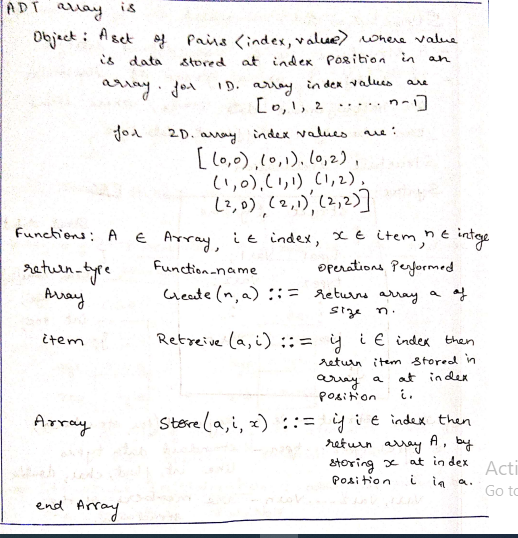 ADT array is
Object : A set of Pairs <index, value> where value
is data stored at index position in an
array. for 1D. array index values are
[0, 1, 2 ..... n-1]
for 2D. array index values are :
[(0,0), (0,1), (0,2),
(1,0), (1,1), (1,2),
(2,0), (2,1), (2,2)]
Functions: A ∈ Array, i ∈ index, x ∈ item, n ∈ intege
return-type Function-name Operations Performed
Array Create (n,a) ::= returns array a of
size n.
item Retreive (a,i) ::= if i ∈ index then
return item stored in
array a at index
position i.
Array Store (a,i,x) ::= if i ∈ index then
return array A, by
storing x at index
position i in a.
end Array
Acti
Go to